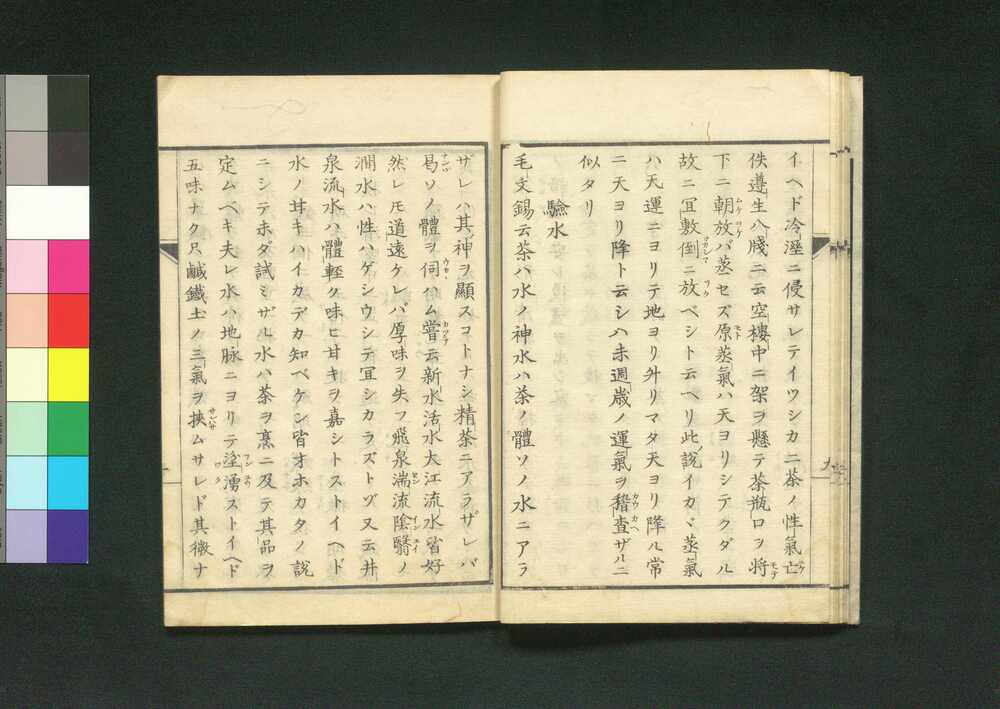 イヘド冷溼ニ侵サレテイツシカニ茶ノ性氣亡
佚遵生八牋ニ云空樓中ニ架ヲ懸テ茶瓶口ヲ將
下ニ朝放バ蒸セズ原蒸氣ハ天ヨリシテクダル
故ニ冝敷倒ニ放ベシト云ヘリ此說イカヾ蒸氣
ハ天運ニヨリテ地ヨリ外リマタ天ヨリ降ル常
ニ天ヨリ降ト云シハ未週歳ノ運氣ヲ稽査ザルニ
似タリ
驗水
毛文錫云茶ハ水ノ神水ハ茶ノ體ソノ水ニアラ
ザレハ其神ヲ顯スコトナシ精茶ニアラザレバ
曷ソノ體ヲ伺ハム嘗云新水活水大江流水皆好
然レ𪜈道遠ケレバ厚味ヲ失フ飛泉湍流陰翳ノ
澗水ハ性ハゲシウシテ冝シカラズトゾ又云井
泉流水ハ體輕ク味ヒ甘キヲ嘉シトストイヘド
水ノ甘キハイカデカ知ベケン皆オホカタノ說
ニシテホダ試ミザル水ハ茶ヲ烹ニ及テ其品ヲ
定ムベキ夫レ水ハ地脉ニヨリテ湧ストイヘド
五味ナク只鹹鐵土ノ三氣ヲ挾ムサレド其微ナ